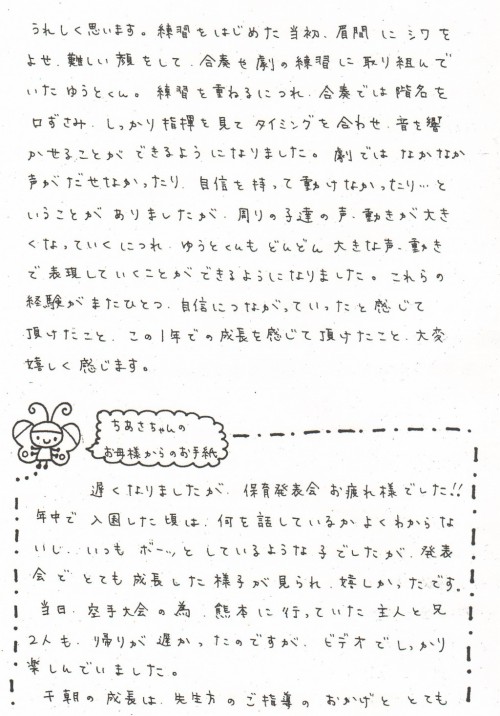 うれしく思います。練習をはじめた当初、眉間にシワを
よせ、難しい顔をして、合奏や劇の練習に取り組んで
いたゆうとくん。練習を重ねるにつれ、合奏では階名を
口ずさみ、しっかり指揮を見てタイミングを合わせ、音を響
かせることができるようになりました。劇ではなかなか
声がだせなかったり、自信を持って動けなかったり…と
いうことがありましたが、周りの子達の声、動きが大き
くなっていくにつれ、ゆうとくんもどんどん大きな声、動き
で表現していくことができるようになりました。これらの
経験がまたひとつ、自信につながっていったと感じて
頂けたこと、この1年での成長を感じて頂けたこと、大変
嬉しく感じます。
ちあさちゃんの
お母様からのお手紙
遅くなりましたが、保育発表会お疲れ様でした!!
年中で入園した頃は、何を話しているかよくわからな
いし、いつもボーッとしているような子でしたが、発表
会でとても成長した様子が見られ、嬉しかったです。
当日、空手大会の為、熊本に行っていた主人と兄
2人も、帰りが遅かったのですが、ビデオでしっかり
楽しんでいました。
千朝の成長は、先生方のご指導のおかげととても